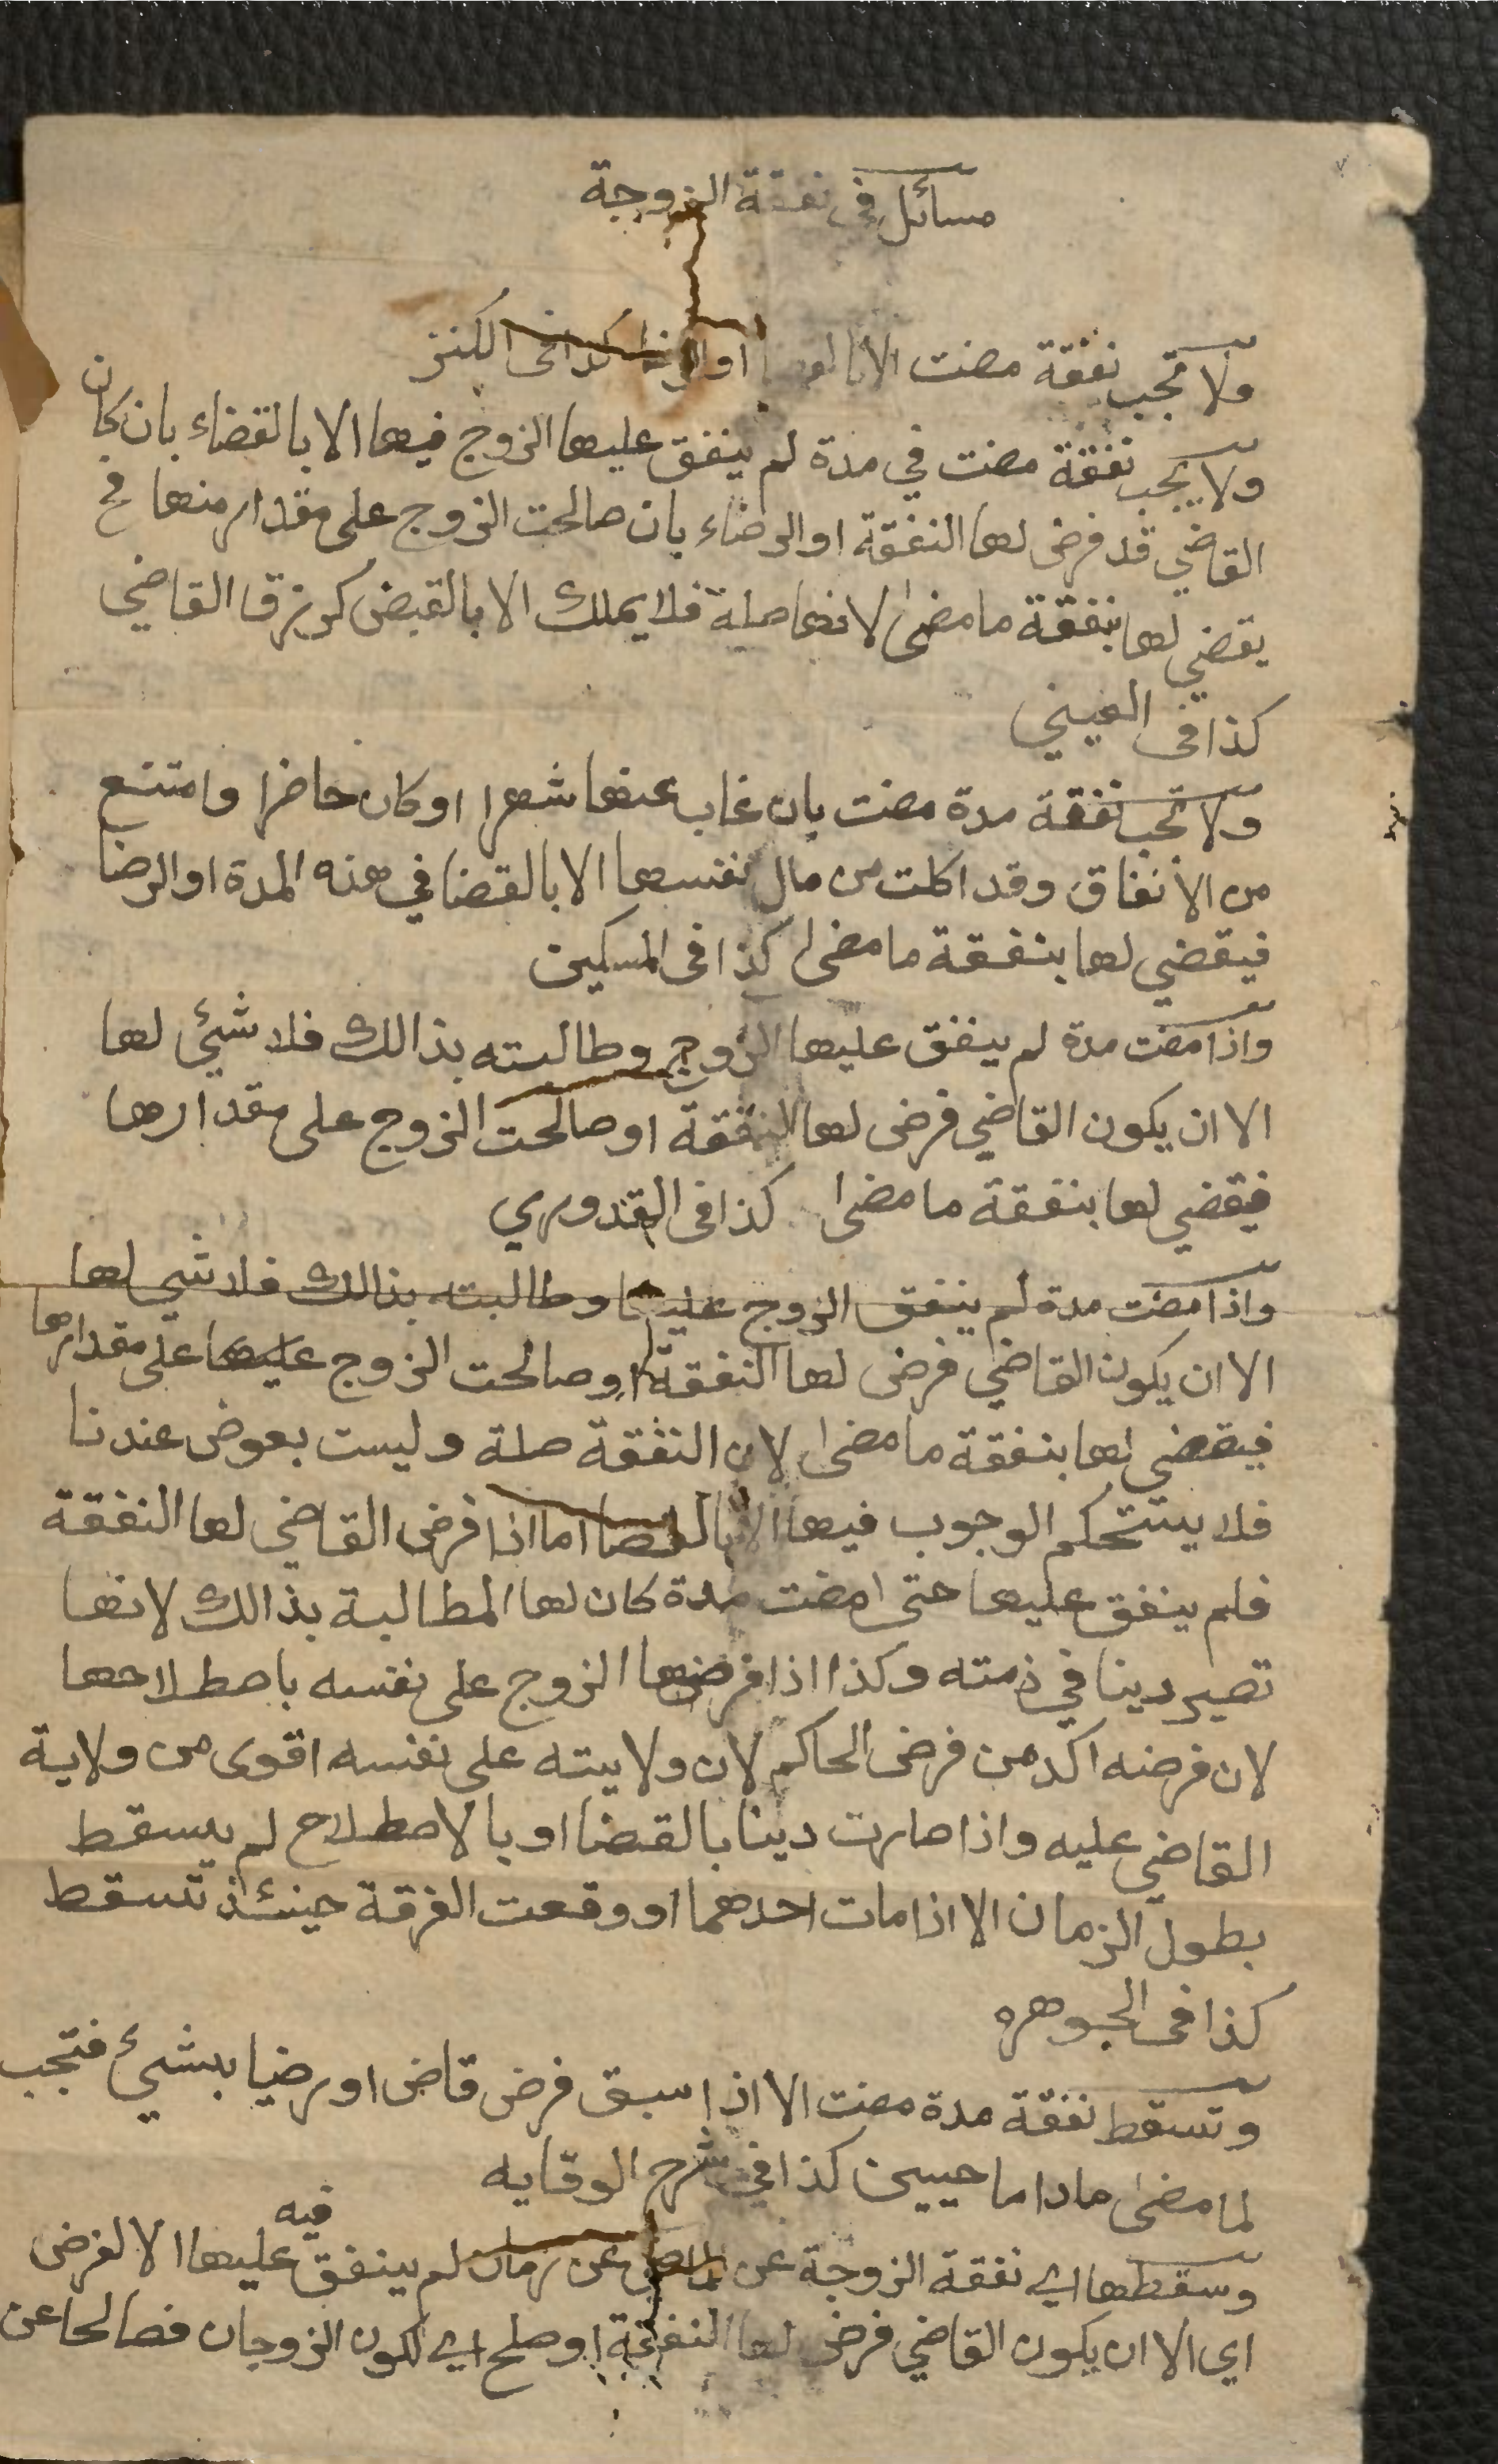 مسائل في نفقة الزوجة
ولا تجب نفقة مضت الا بالقضا او الرضا كذا في الكنز
ولا يجب نفقة مضت في مدة لم ينفق عليها الزوج فيها الا بالقضاء بان كان
القاضي قد فرض لها النفقة او الرضاء بان صالحت الزوج على مقدار منها فح
يقضي لها بنفقة ما مضى لانها صلة فلا يملك الا بالقبض كرزق القاضي
كذا في العيني
ولا تجب نفقة مدة مضت بان غاب عنها شهرا او كان حاضرا وامتنع
من الانفاق وقد اكلت من مال نفسها الا بالقضا في هذه المدة او الرضا
فيقضي لها بنفقة ما مضى كذا في المسكين
واذا مضت مدة لم ينفق عليها الزوج وطالبته بذالك فلا شيء لها
الا ان يكون القاضي فرض لها النفقة او صالحت الزوج على مقدارها
فيقضي لها بنفقة ما مضا كذا في القدوري
واذا مضت مدة لم ينفق الزوج عليها وطالبته بذالك فلا شي لها
الا ان يكون القاضي فرض لها النفقة او صالحت الزوج عليها على مقدارها
فيقضي لها بنفقة ما مضى لان النفقة صلة وليست بعوض عندنا
فلا يستحكم الوجوب فيها الا بالقضا اما اذا فرض القاضي لها النفقة
فلم ينفق عليها حتى امضت مدة كان لها المطالبة بذالك لانها
تصير دينا في ذمته وكذا اذا فرضها الزوج على نفسه باصطلاحها
لان فرضه اكد من فرض الحاكم لان ولايته على نفسه اقوى من ولاية
القاضي عليه واذا صارت دينا بالقضا او بالاصطلاح لم يسقط
بطول الزمان الا اذا مات احدهما او وقعت الفرقة حينئذ تسقط
كذا في الجوهره
وتسقط نفقة مدة مضت الا اذا سبق فرض قاض او رضيا بشيء فتجب
لما مضى ماداما حيين كذا في شرح الوقايه
وسقطها اي نفقة الزوجة عن عن زمان لم ينفق فيه عليها الا لفرض
اي الا ان يكون القاضي فرض لها النفقة او صلح اي لكون الزوجان فصالحا عن